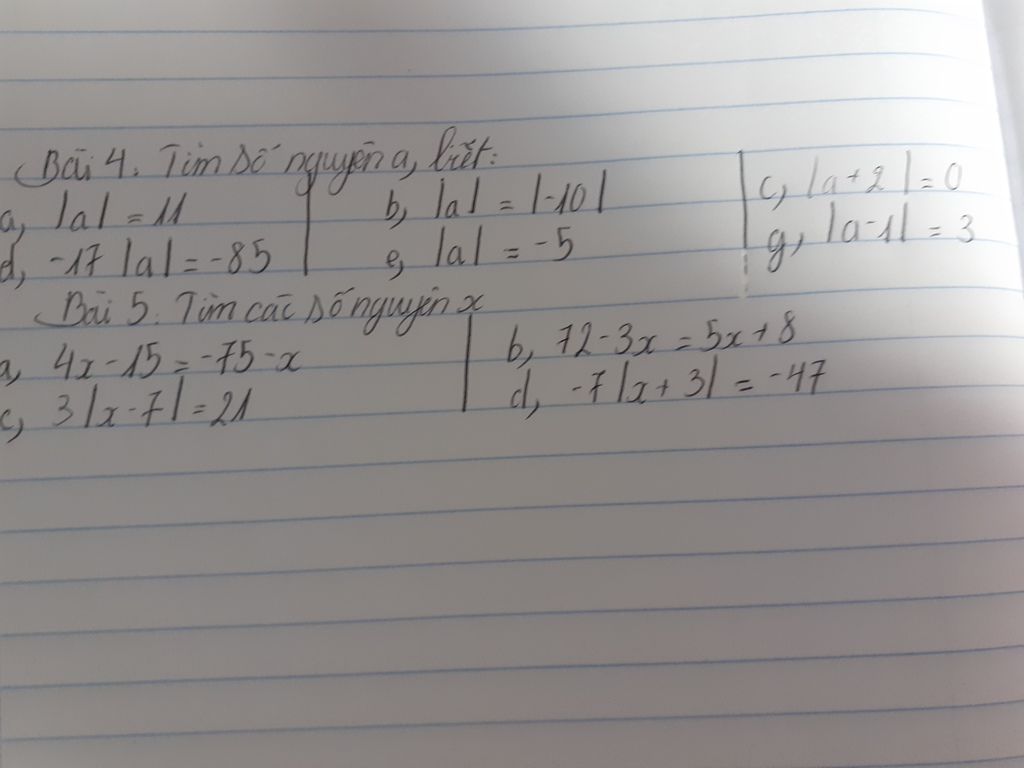 Bài 4. Tìm số nguyên a, biết:
a, |a| = 11 b, |a| = |-10| c, |a + 2| = 0
d, -17 |a| = -85 e, |a| = -5 g, |a - 1| = 3
Bài 5. Tìm các số nguyên x
a, 4x - 15 = -75 - x b, 72 - 3x = 5x + 8
c, 3|x - 7| = 21 d, -7 |x + 3| = -47